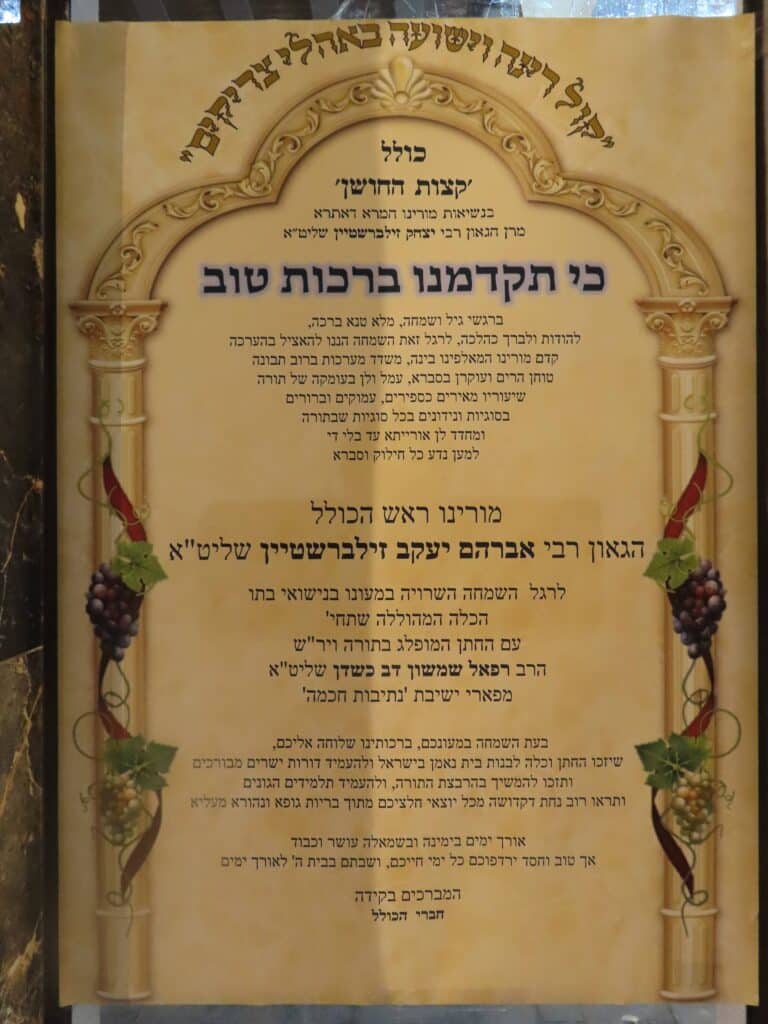 "קול רינה וישועה באהלי צדיקים"
כולל
'קצות החושן'
בנשיאות מורינו המרא דאתרא
מרן הגאון רבי יצחק זילברשטיין שליט"א
כי תקדמנו ברכות טוב
ברגשי גיל ושמחה, מלא טנא ברכה,
להודות ולברך כהלכה, לרגל זאת השמחה הננו להאציל בהערכה
קדם מורינו המאלפינו בינה, משדד מערכות ברוב תבונה
טוחן הרים ועוקרן בסברא, עמל ולן בעומקה של תורה
שיעוריו מאירים כספירים, עמוקים וברורים
בסוגיות ונידונים בכל סוגיות שבתורה
ומחדד לן אורייתא עד בלי די
למען נדע כל חילוק וסברא
מורינו ראש הכולל
הגאון רבי אברהם יעקב זילברשטיין שליט"א
לרגל השמחה השרויה במעונו בנישואי בתו
הכלה המהוללה שתחי'
עם החתן המופלג בתורה ויר"ש
הרב רפאל שמשון דב כשדן שליט"א
מפארי ישיבת 'נתיבות חכמה'
בעת השמחה במעונכם, ברכותינו שלוחה אליכם,
שיזכו החתן וכלה לבנות בית נאמן בישראל ולהעמיד דורות ישרים מבורכים
ותזכו להמשיך בהרבצת התורה, ולהעמיד תלמידים הגונים
ותראו רוב נחת דקדושה מכל יוצאי חלציכם מתוך בריות גופא ונהורא מעליא
אורך ימים בימינה ובשמאלה עושר וכבוד
אך טוב וחסד ירדפוכם כל ימי חייכם, ושבתם בבית ה' לאורך ימים
המברכים בקידה
חברי הכולל